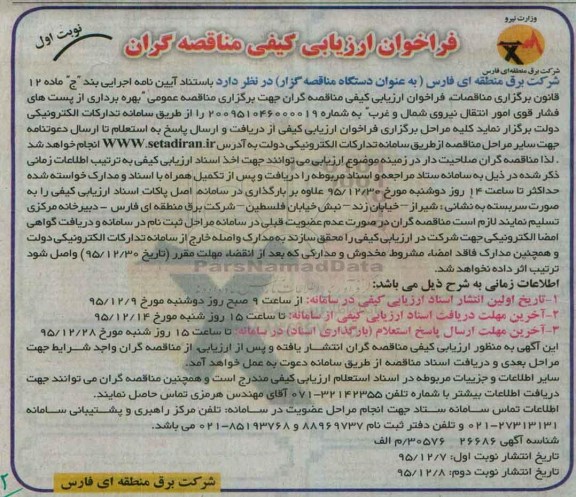 وزارت نیرو
شرکت برق منطقه‌ای فارس
نوبت اول
فراخوان ارزیابی کیفی مناقصه گران
شرکت برق منطقه ای فارس ( به عنوان دستگاه مناقصه گزار) در نظر دارد باستناد آیین نامه اجرایی بند "ج" ماده ۱۲
قانون برگزاری مناقصات، فراخوان ارزیابی کیفی مناقصه گران جهت برگزاری مناقصه عمومی "بهره برداری از پست های
فشار قوی امور انتقال نیروی شمال و غرب" به شماره ۲۰۰۹۵۱۰۴۶۰۰۰۰۱۹ را از طریق سامانه تدارکات الکترونیکی
دولت برگزار نماید کلیه مراحل برگزاری فراخوان ارزیابی کیفی از دریافت و ارسال پاسخ به استعلام تا ارسال دعوتنامه
جهت سایر مراحل مناقصه ازطریق سامانه تدارکات الکترونیکی دولت به آدرس WWW.setadiran.ir انجام خواهد شد
. لذا مناقصه گران صلاحیت دار در زمینه موضوع ارزیابی می توانند جهت اخذ اسناد ارزیابی کیفی به ترتیب اطلاعات زمانی
ذکر شده در ذیل به سامانه ستاد مراجعه و اسناد مربوطه را دریافت و پس از تکمیل همراه با اسناد و مدارک خواسته شده
حداکثر تا ساعت ۱۴ روز دوشنبه مورخ ۹۵/۱۲/۳۰ علاوه بر بارگذاری در سامانه، اصل پاکات اسناد ارزیابی کیفی را به
صورت سربسته به نشانی : شیراز – خیابان زند – نبش خیابان فلسطین – شرکت برق منطقه ای فارس - دبیرخانه مرکزی
تسلیم نمایند لازم است مناقصه گران در صورت عدم عضویت قبلی در سامانه مراحل ثبت نام در سامانه و دریافت گواهی
امضا الکترونیکی جهت شرکت در ارزیابی کیفی را محقق سازند به مدارک واصله خارج از سامانه تدارکات الکترونیکی دولت
و همچنین مدارک فاقد امضاء، مشروط مخدوش و مدارکی که بعد از انقضاء مهلت مقرر (تاریخ ۹۵/۱۲/۳۰) واصل شود
ترتیب اثر داده نخواهد شد.
ParsNamadData
اطلاعات زمانی به شرح ذیل می باشد:
۱-تاریخ اولین انتشار اسناد ارزیابی کیفی در سامانه: از ساعت ۹ صبح روز دوشنبه مورخ ۹۵/۱۲/۹
۲-آخرین مهلت دریافت اسناد ارزیابی کیفی از سامانه: تا ساعت ۱۵ روز شنبه مورخ ۹۵/۱۲/۱۴
۳-آخرین مهلت ارسال پاسخ استعلام (بارگذاری اسناد) در سامانه: تا ساعت ۱۵ روز شنبه مورخ ۹۵/۱۲/۲۸
این آگهی به منظور ارزیابی کیفی مناقصه گران انتشار یافته و پس از ارزیابی، از مناقصه گران واجد شرایط جهت
مراحل بعدی و دریافت اسناد مناقصه از طریق سامانه دعوت به عمل خواهد آمد.
سایر اطلاعات و جزییات مربوطه در اسناد استعلام ارزیابی کیفی مندرج است و همچنین مناقصه گران می توانند جهت
دریافت اطلاعات بیشتر با شماره تلفن ۳۲۱۴۲۳۵۵-۰۷۱ آقای مهندس هرمزی تماس حاصل نمایند.
اطلاعات تماس سامانه ستاد جهت انجام مراحل عضویت در سامانه: تلفن مرکز راهبری و پشتیبانی سامانه
۲۷۳۱۳۱۳۱-۰۲۱ و تلفن دفتر ثبت نام ۸۸۹۶۹۷۳۷ و ۸۵۱۹۳۷۶۸-۰۲۱ می باشد.
شناسه آگهی ۲۶۶۸۶ ۳۰۵۷۶/م الف
تاریخ انتشار نوبت اول: ۹۵/۱۲/۷
تاریخ انتشار نوبت دوم: ۹۵/۱۲/۸
شرکت برق منطقه ای فارس